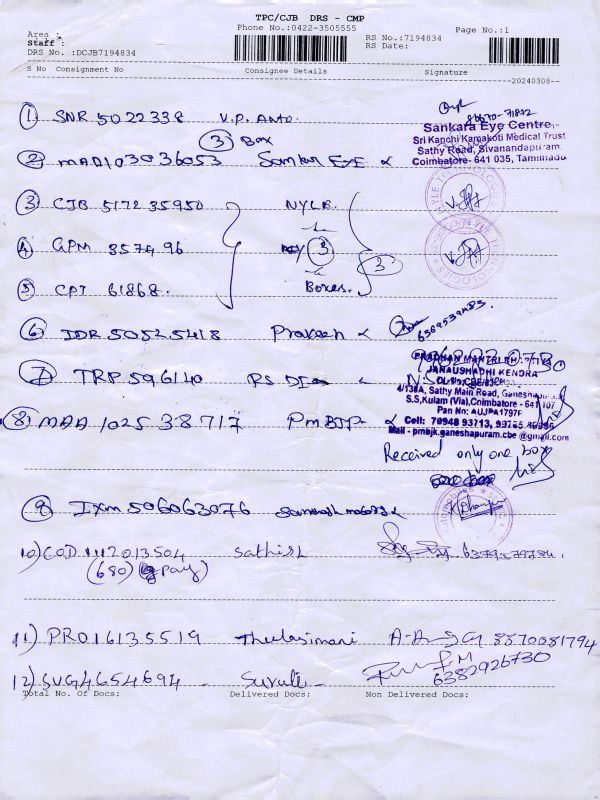 TPC/CJB DRS - CMP
Phone No.:0422-3505555
Page No.:1
Area :
RS No.:7194834
Staff :
RS Date:
DRS No. :DCJB7194834
S No Consignment No Consignee Details Signature
20240308
1 SNR 5022338 V.P. Anto.
3 Box
Sankara Eye Centre,
Sri Kanchi Kamakoti Medical Trust
Sathy Road, Sivanandapuram,
Coimbatore- 641 035, Tamilnadu
2 MAA103036053
3 CJB 517235950 NYLE
4 GPM 857496 3
3
5 CPT 61868. Boxes.
6 IDR 50525418 Praveen
7 TRP 596140
PRADHAN MANTRI BHARTIYA
JANAUSHADHI KENDRA
4/138A, Sathy Main Road, Ganeshapuram
S.S,Kulam (Via),Coimbatore - 641 107
Pan No: AUJPA1797F
8 MAA 102538717 PMBJP
Cell: 70948 93713,
Mail - pmbjk.ganeshapuram.cbe @gmail.com
Received only one box
9 IXM 506063076
10) COD 1112013504 Sathish
(680) Gpay)
11) PRO16135519 Thulasimani 8870081794
12) SVG4654694 - 6382926730
Total No. Of Docs: Delivered Docs: Non Delivered Docs: